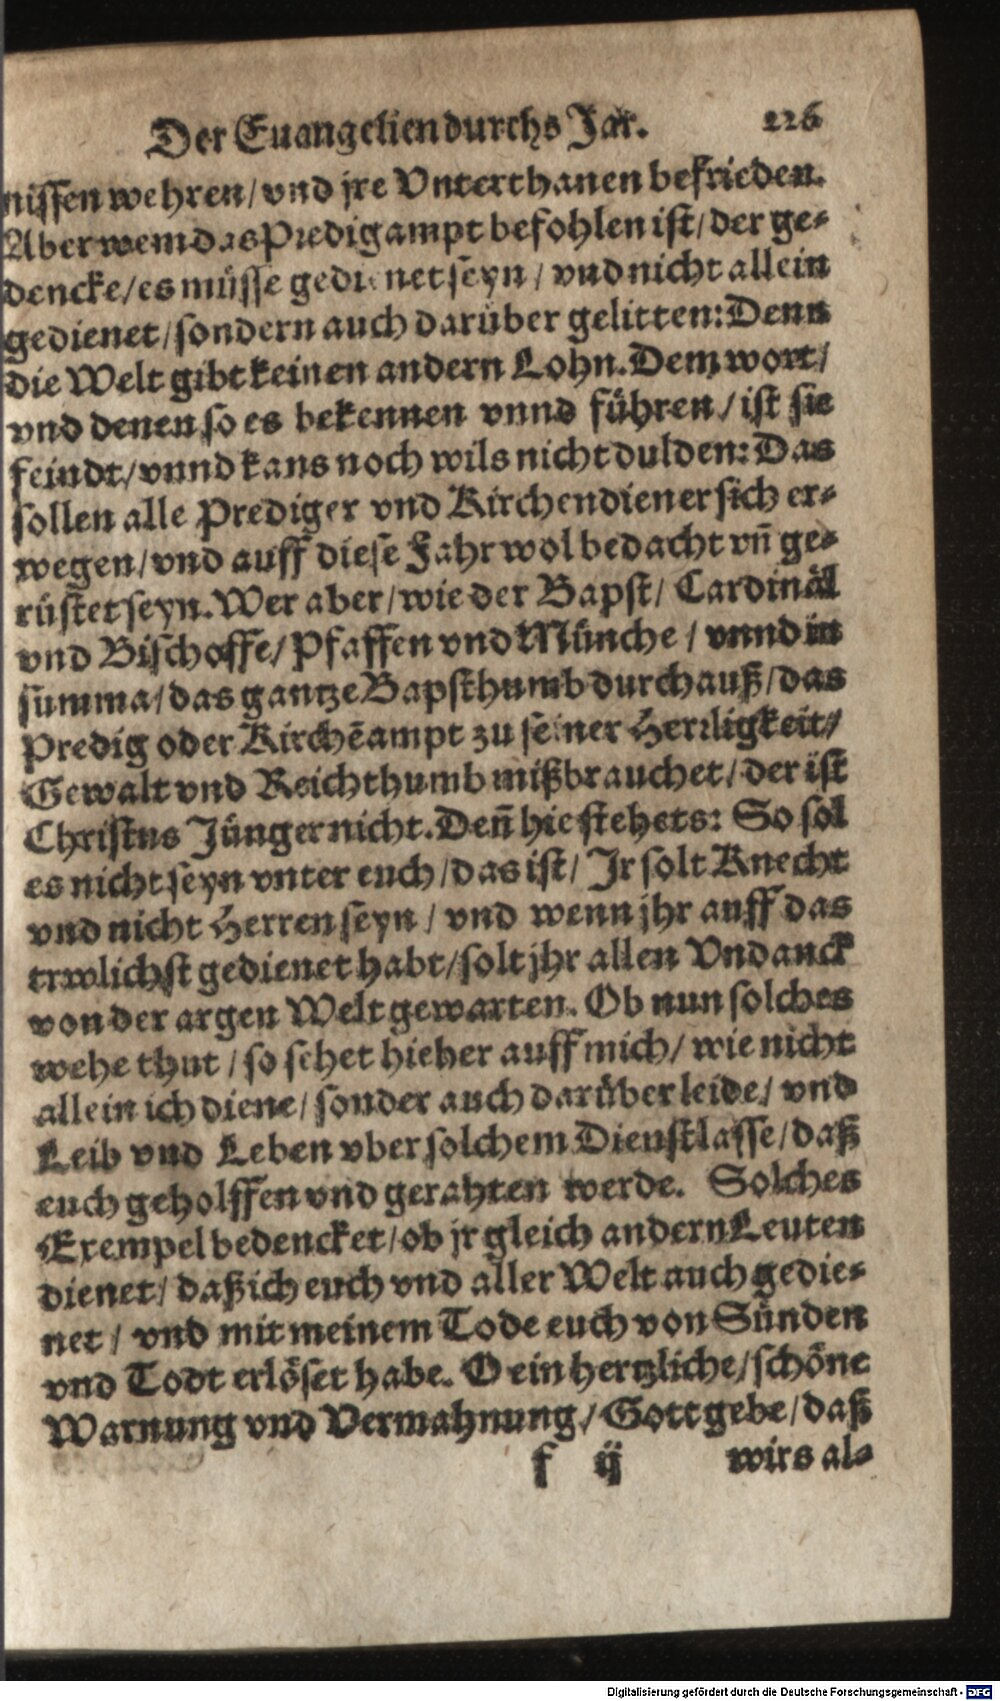 Der Euangelien durchs Jar. 226
nissen wehren/ vnd jre Vnterthanen befrieden.
Aber wem das Predigampt befohlen ist/ der ge-
dencke/ es müsse gedienet seyn/ vnd nicht allein
gedienet/ sondern auch darüber gelitten: Denn
die Welt gibt keinen andern Lohn. Dem wort/
vnd denen so es bekennen vnnd führen/ ist sie
feindt/ vnnd kans noch wils nicht dulden: Das
sollen alle Prediger vnd Kirchendiener sich er-
wegen/ vnd auff diese Fahr wol bedacht vn̄ ge-
rüstet seyn. Wer aber/ wie der Bapst/ Cardinäl
vnd Bischoffe/ Pfaffen vnd Münche/ vnnd in
summa/ das gantze Bapsthumb durchauß/ das
Predig oder Kirchēampt zu seiner Herrligkeit/
Gewalt vnd Reichthumb mißbrauchet/ der ist
Christus Jünger nicht. Den̄ hie stehets: So sol
es nicht seyn vnter euch/ das ist/ Jr solt Knecht
vnd nicht Herren seyn/ vnd wenn jhr auff das
trwlichst gedienet habt/ solt jhr allen Vndanck
von der argen Welt gewarten. Ob nun solches
wehe thut/ so sehet hieher auff mich/ wie nicht
allein ich diene/ sonder auch darüber leide/ vnd
Leib vnd Leben vber solchem Dienst lasse/ daß
euch geholffen vnd gerahten werde. Solches
Exempel bedencket/ ob jr gleich andern Leuten
dienet/ daß ich euch vnd aller Welt auch gedie-
net/ vnd mit meinem Tode euch von Sünden
vnd Todt erlöset habe. O ein hertzliche/ schöne
Warnung vnd Vermahnung/ Gott gebe/ daß
f ij wirs al-
Digitalisierung gefördert durch die Deutsche Forschungsgemeinschaft - DFG